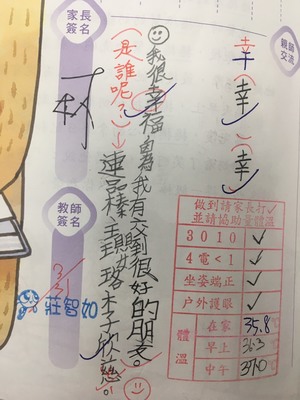 親師交流
幸(幸)(幸)
我很幸福,因為我有交到很好的朋友。
(是誰呢?)→連品榛、王瑀珞、李欣慈。
家長簽名
林
教師簽名
3/31
莊智如
做到請家長打✓
並請協助量體溫
3010 ✓
4電<1 ✓
坐姿端正 ✓
戶外護眼 ✓
體溫
在家 35.8
早上 36.3
中午 37.0